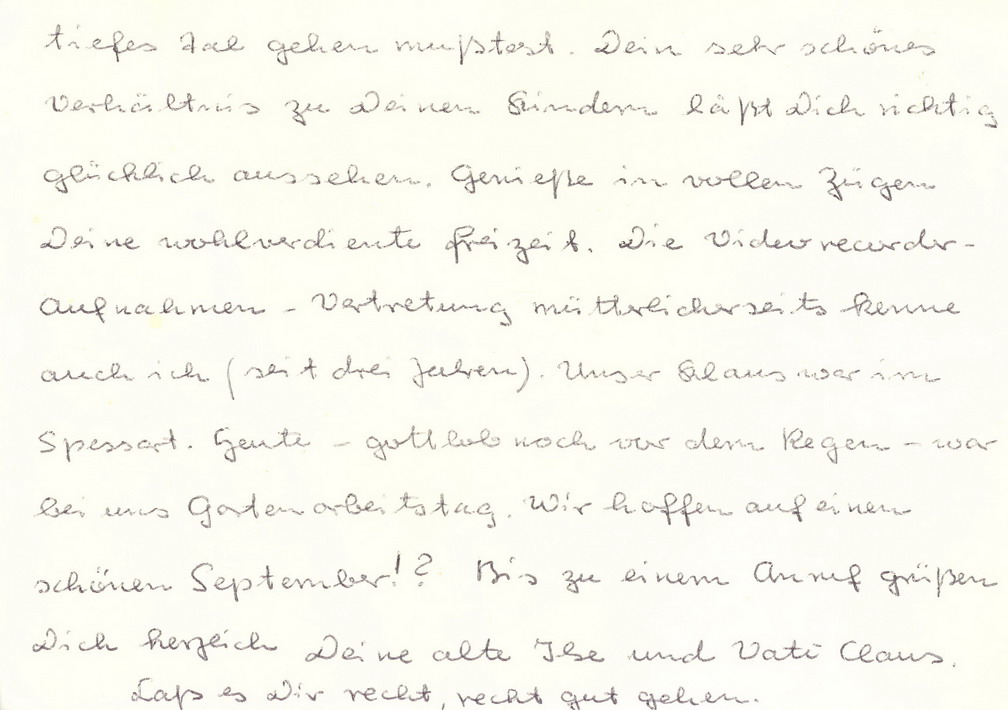 tiefes Tal gehen mußtest. Dein sehr schönes
Verhältnis zu Deinen Kindern läßt Dich richtig
glücklich aussehen. Genieße in vollen Zügen
Deine wohlverdiente Freizeit. Die Videorecorder-
Aufnahmen - Vertretung mütterlicherseits kenne
auch ich (seit drei Jahren). Unser Klaus war im
Spessart. Heute - gottlob noch vor dem Regen - war
bei uns Gartenarbeitstag. Wir hoffen auf einen
schönen September!? Bis zu einem Anruf grüßen
Dich herzlich Deine alte Ilse und Vati Claus.
Laß es Dir recht, recht gut gehen.